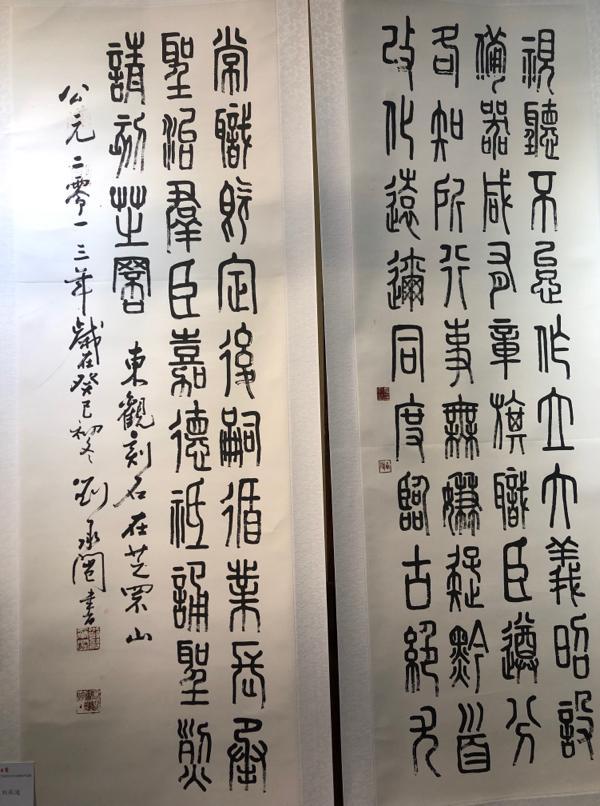 視聽不怠作立大義昭設
備器咸有章旗職臣遵分
各知所行事無嫌疑黔首
攺化遠邇同度臨古絕尤
常職既定後嗣循業長承
聖治羣臣嘉德祗誦聖烈
請刻芝罘 東觀刻石在芝罘山
公元二零一三年歲在癸巳初冬 劉承闓書